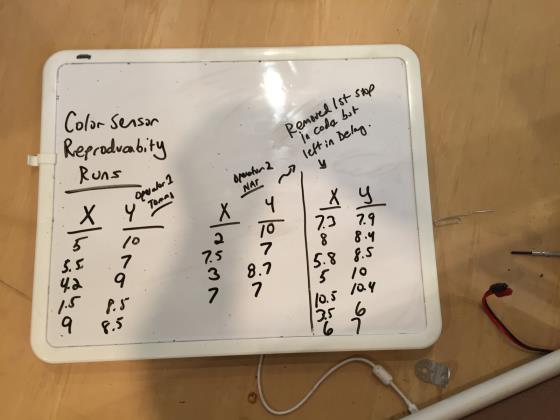 Color Sensor
Reproduceability
Runs
Operator 1
X Y
5 10
5.5 7
4.2 9
1.5 8.5
9 8.5
Operator 2
NAT
X Y
2 10
7.5 7
3 8.7
7 7
Removed 1st stop
in code but
left in Delay.
X Y
7.3 7.9
8 8.4
5.8 8.5
5 10
10.5 10.4
3.5 6
6 7